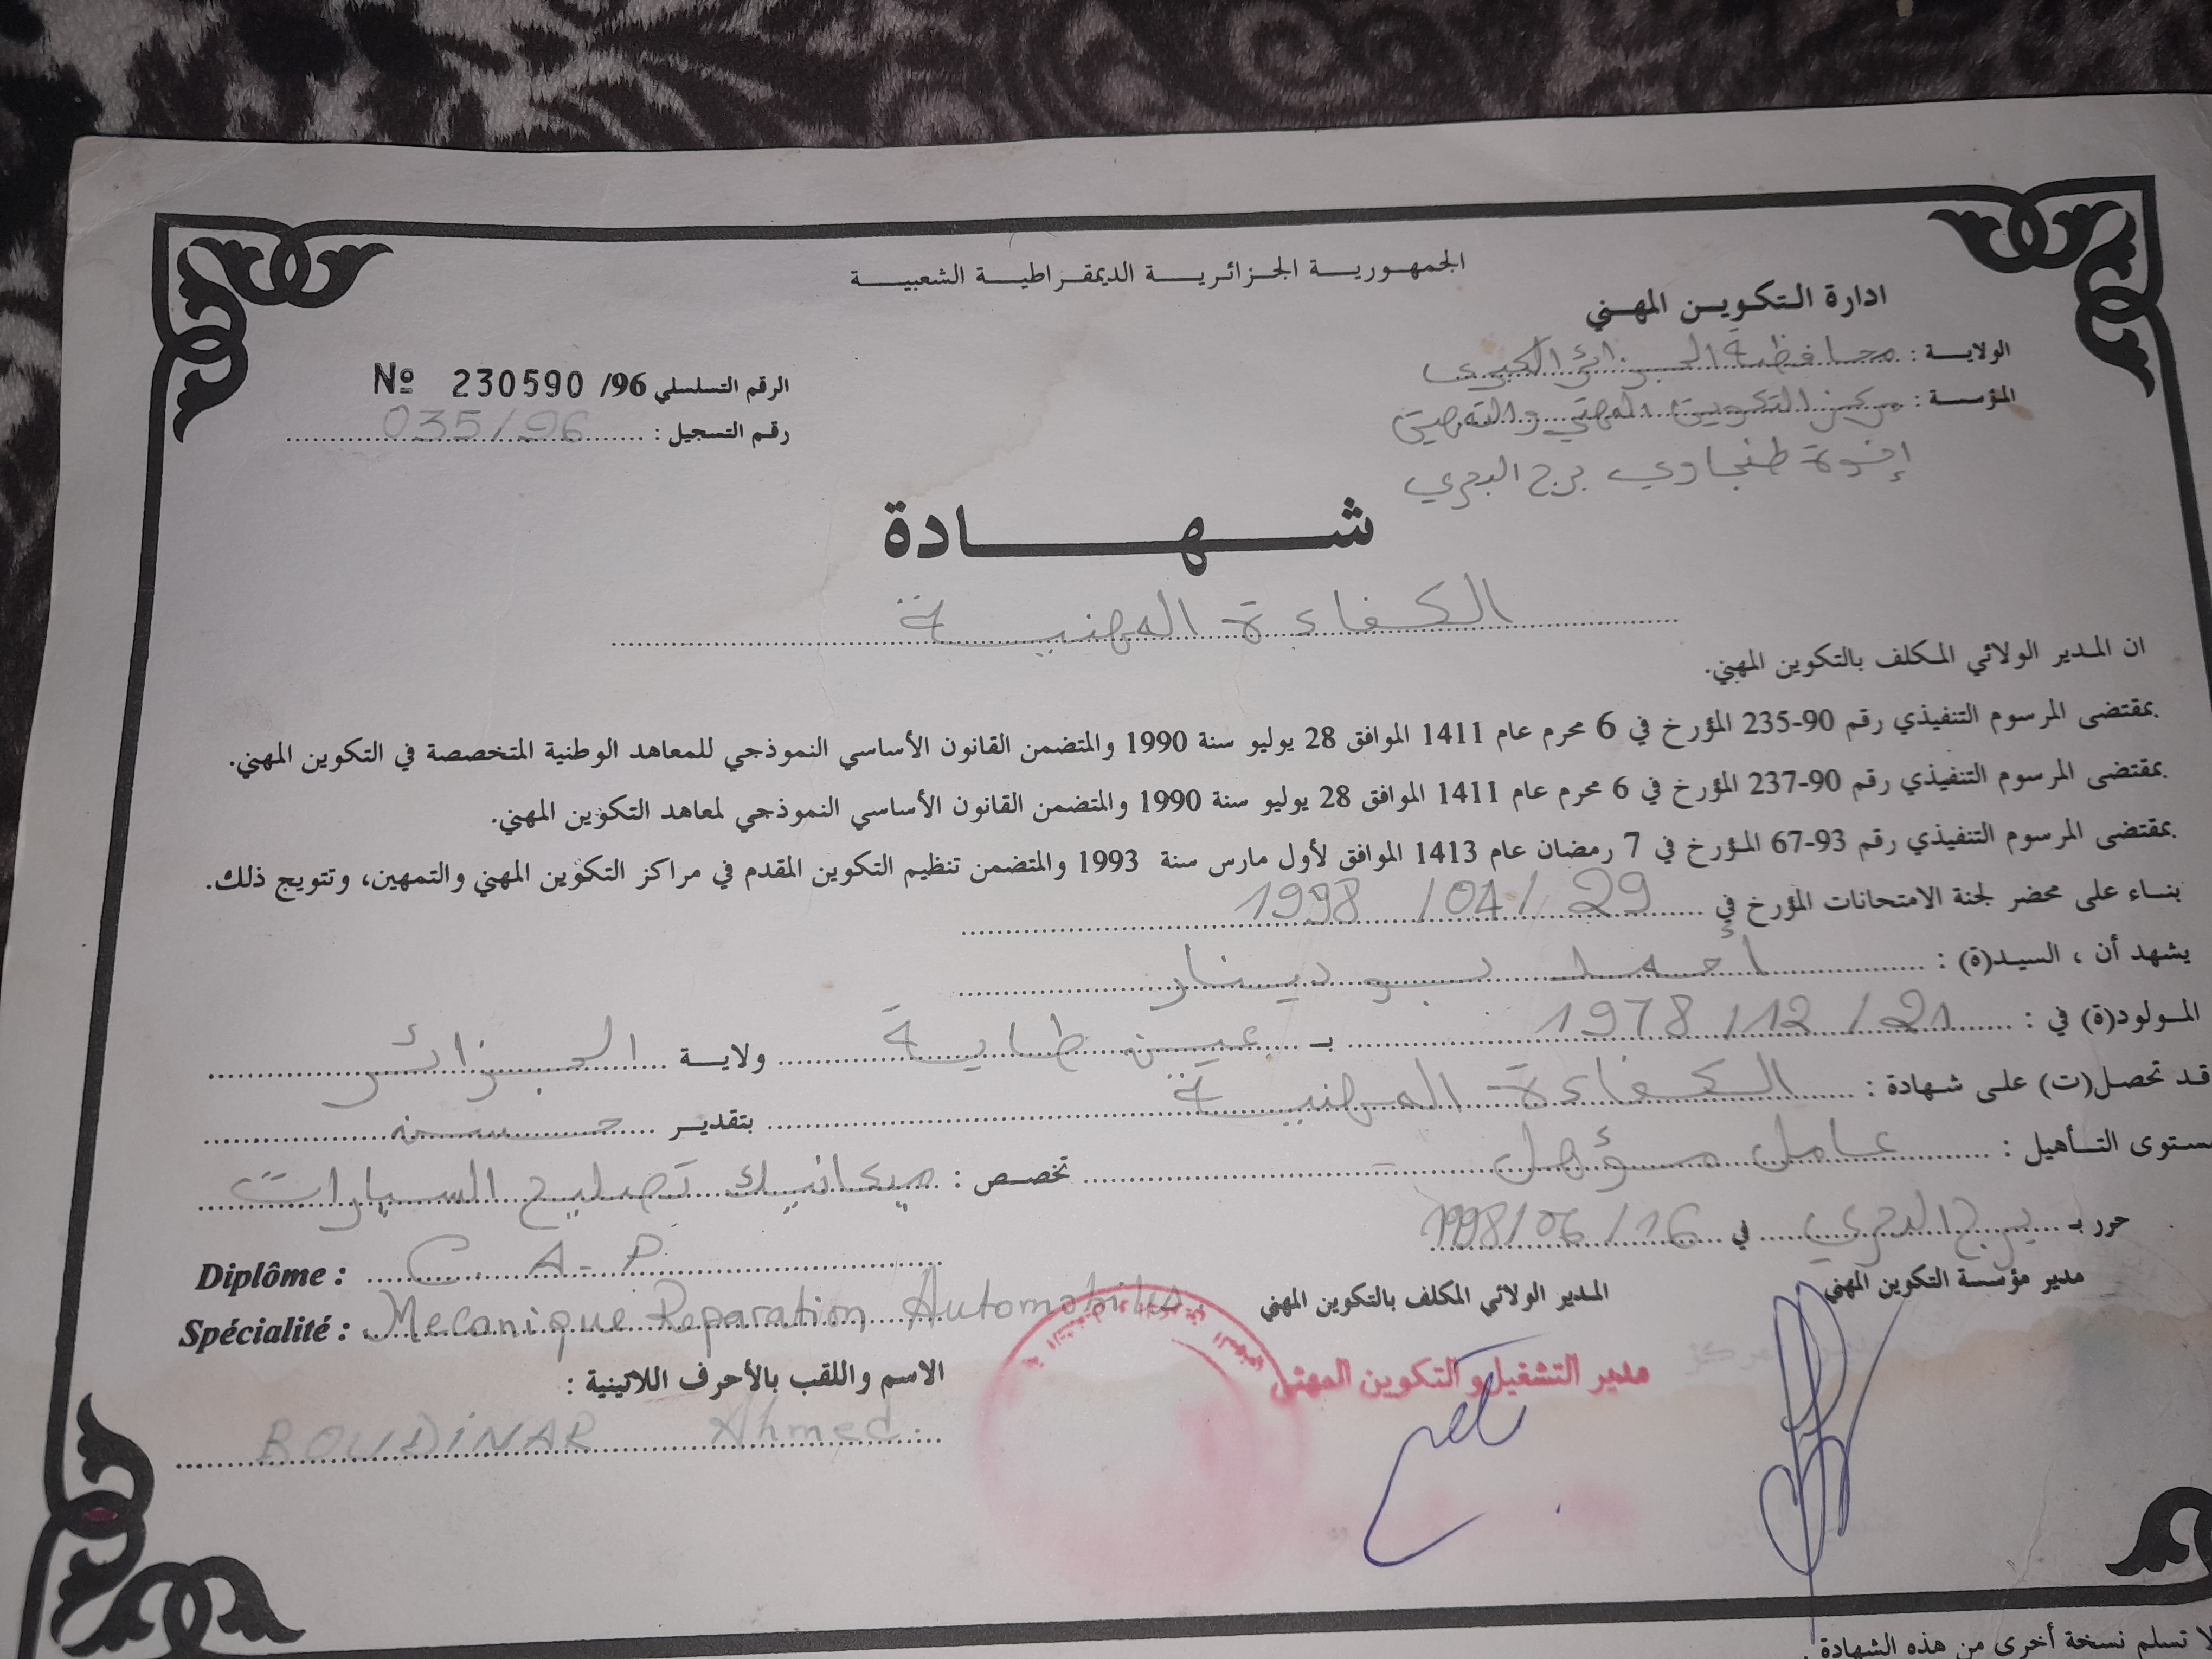 الجمهورية الجزائرية الديمقراطية الشعبية
ادارة التكوين المهني
الولاية : محافظة الجزائر الكبرى
المؤسسة : مركز التكوين المهني والتمهين
إخوة طنجاوي برج البحري
Nº 230590 /96 الرقم التسلسلي
رقم التسجيل : 035/96
شهادة
الكفاءة المهنية
ان المدير الولائي المكلف بالتكوين المهني.
بمقتضى المرسوم التنفيذي رقم 90-235 المؤرخ في 6 محرم عام 1411 الموافق 28 يوليو سنة 1990 والمتضمن القانون الأساسي النموذجي للمعاهد الوطنية المتخصصة في التكوين المهني.
بمقتضى المرسوم التنفيذي رقم 90-237 المؤرخ في 6 محرم عام 1411 الموافق 28 يوليو سنة 1990 والمتضمن القانون الأساسي النموذجي لمعاهد التكوين المهني.
بمقتضى المرسوم التنفيذي رقم 93-67 المؤرخ في 7 رمضان عام 1413 الموافق لأول مارس سنة 1993 والمتضمن تنظيم التكوين المقدم في مراكز التكوين المهني والتمهين، وتتويج ذلك.
بناء على محضر لجنة الامتحانات المؤرخ في 29 / 04 / 1998
يشهد أن ، السيد(ة) : أحمد بودينار
المولود(ة) في : 21 / 12 / 1978 بـ عين طاية ولاية الجزائر
قد تحصل(ت) على شهادة : الكفاءة المهنية بتقدير حسن
مستوى التأهيل : عامل مؤهل تخصص : ميكانيك تصليح السيارات
حرر بـ برج البحري في 16 / 06 / 1998
Diplôme : C. A-P
Spécialité : Mecanique Reparation Automobiles
مدير مؤسسة التكوين المهني
المدير الولائي المكلف بالتكوين المهني
مدير التشغيل والتكوين المهني
الاسم واللقب بالأحرف اللاتينية :
BOUDINAR Ahmed
لا تسلم نسخة أخرى من هذه الشهادة.